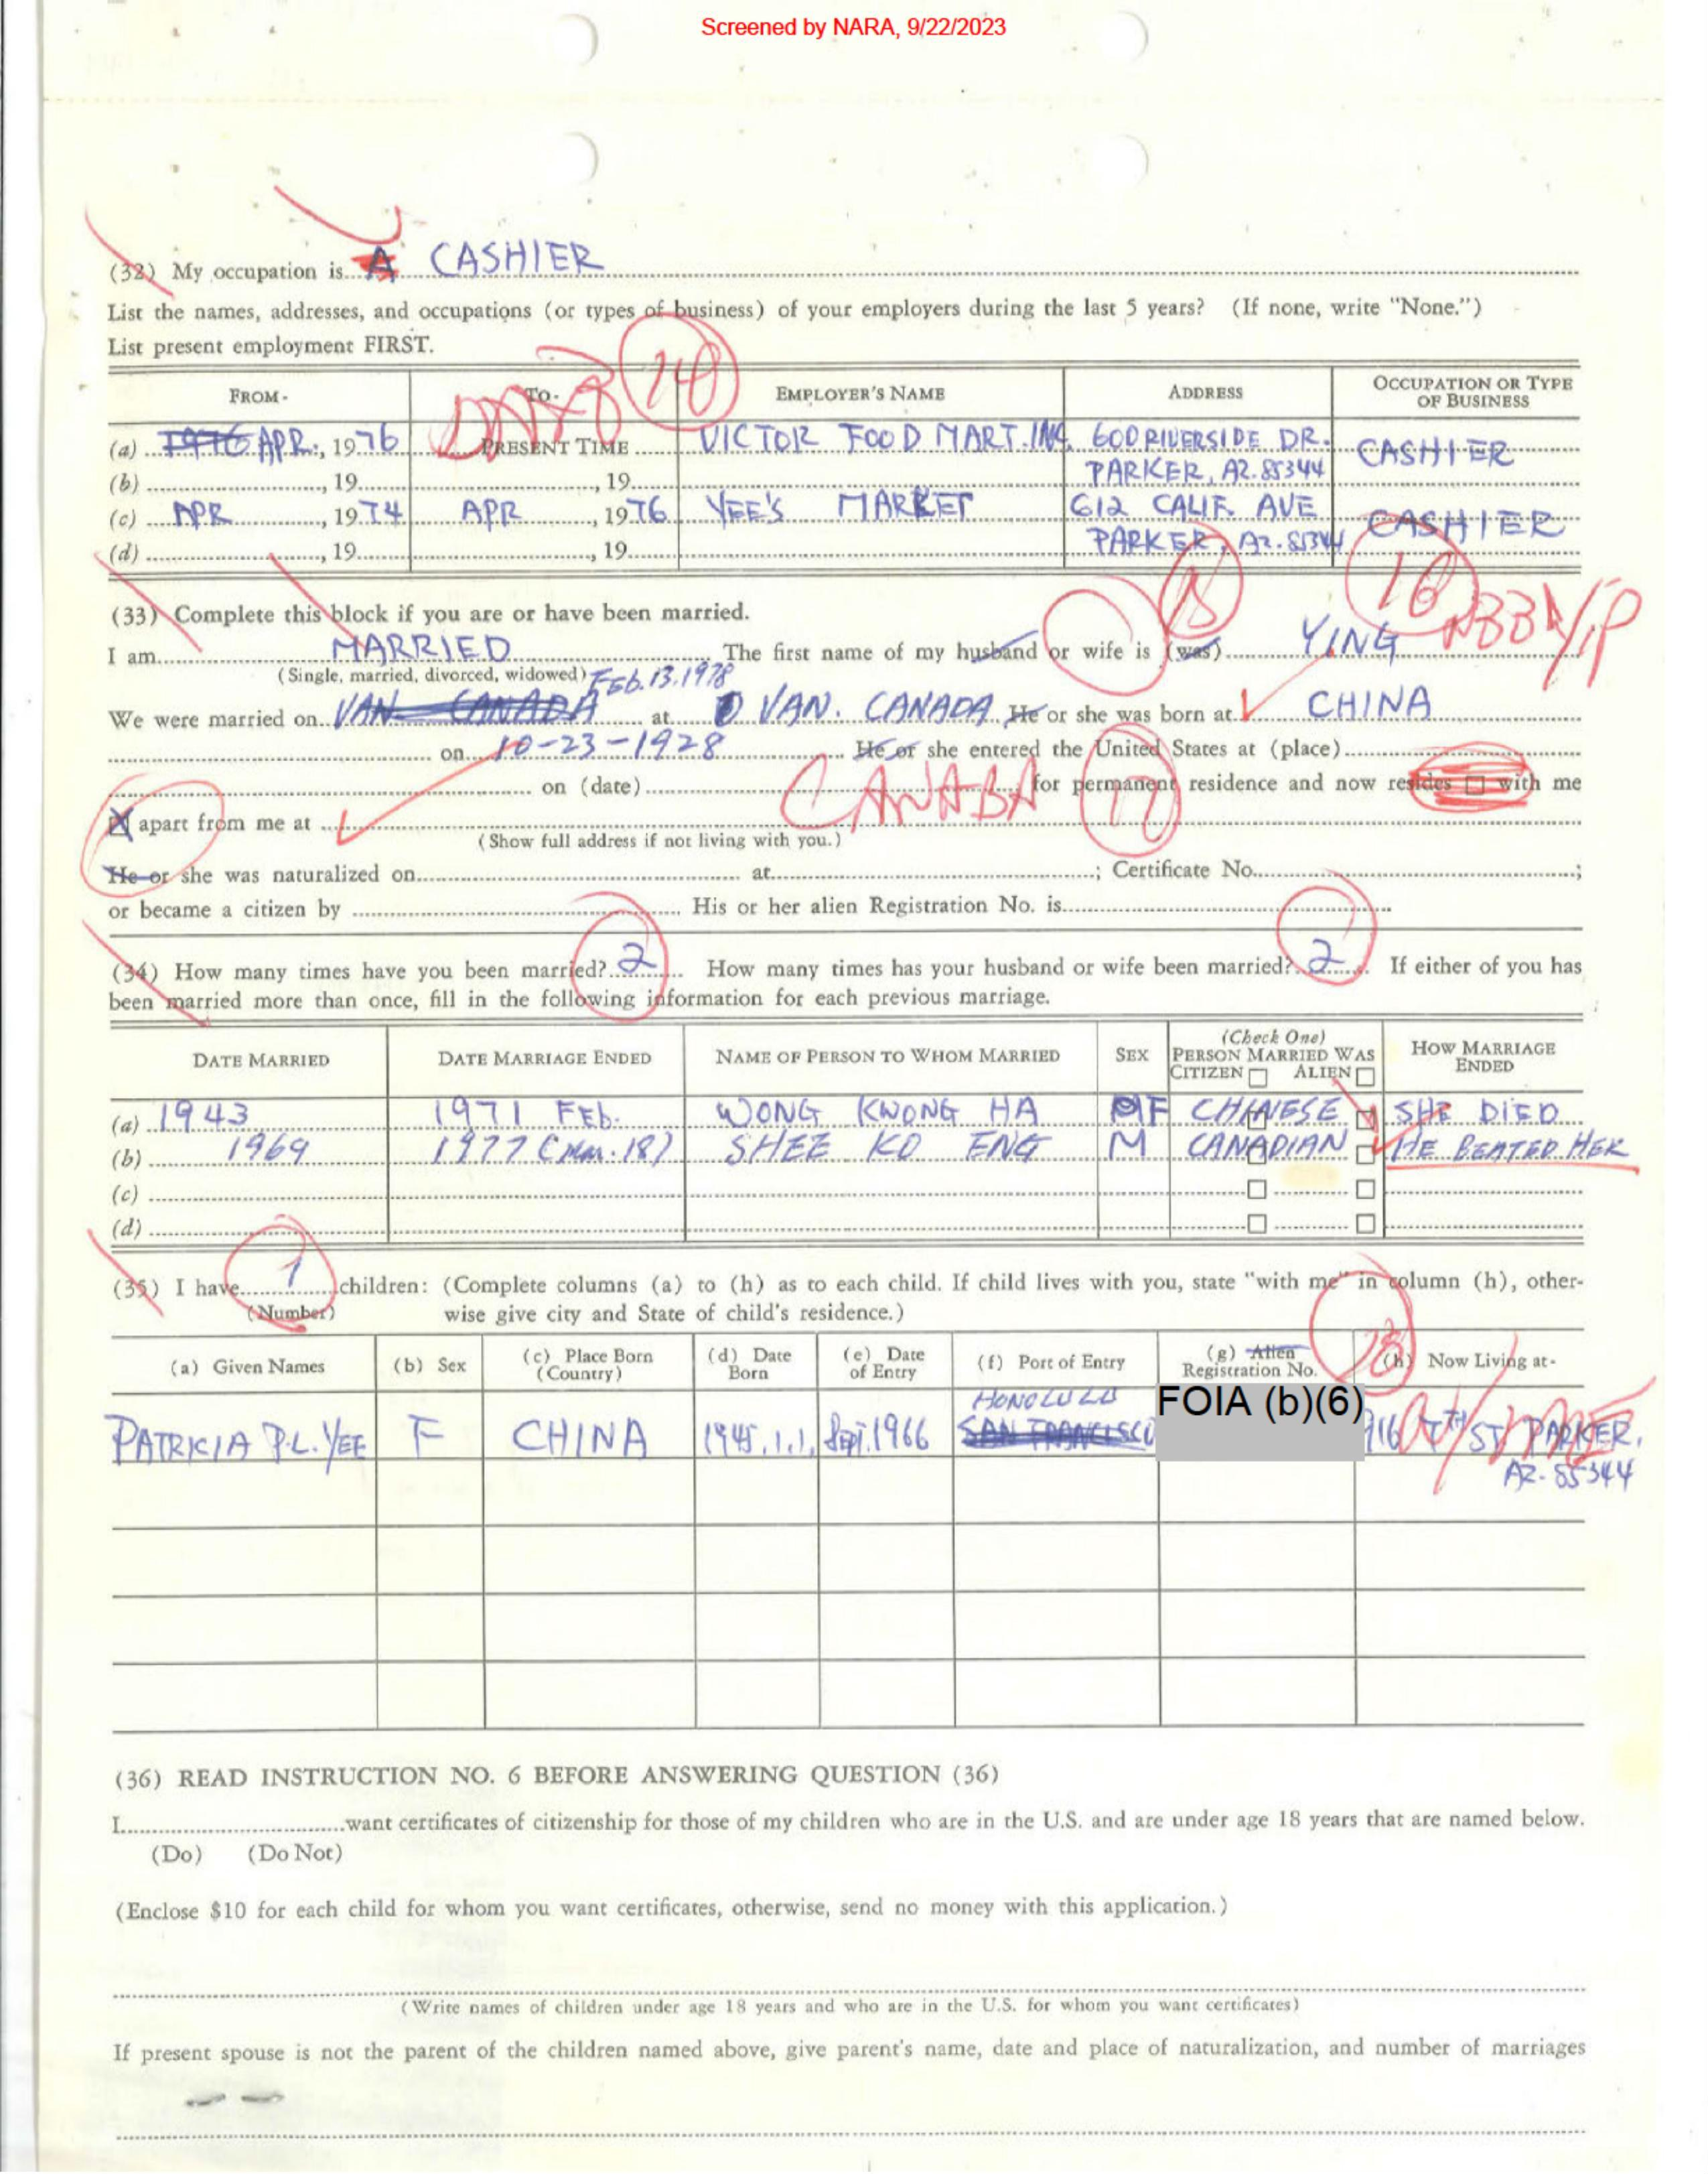 Screened by NARA, 9/22/2023
(32) My occupation is A CASHIER
List the names, addresses, and occupations (or types of business) of your employers during the last 5 years? (If none, write "None.")
List present employment FIRST.
FROM- TO- EMPLOYER'S NAME ADDRESS OCCUPATION OR TYPE OF BUSINESS
14
(a) 1976 APR., 1976 PRESENT TIME VICTOR FOOD MART. INC. 600 RIVERSIDE DR. CASHIER
(b) , 19 , 19 PARKER, AZ. 85344
(c) APR , 1974 APR , 1976 YEE'S MARKET 612 CALIF. AVE CASHIER
(d) , 19 , 19 PARKER, AZ. 85344
16
(33) Complete this block if you are or have been married.
I am MARRIED The first name of my husband or wife is (was) YING
(Single, married, divorced, widowed) FEB. 13. 1978
We were married on VAN CANADA at VAN. CANADA He or she was born at CHINA
on 10-23-1928 He or she entered the United States at (place)
on (date) CANADA for permanent residence and now resides with me
17
X apart from me at
(Show full address if not living with you.)
He or she was naturalized on at ; Certificate No. ;
or became a citizen by His or her alien Registration No. is
(34) How many times have you been married? 2 How many times has your husband or wife been married? 2 If either of you has
been married more than once, fill in the following information for each previous marriage.
DATE MARRIED DATE MARRIAGE ENDED NAME OF PERSON TO WHOM MARRIED SEX (Check One) PERSON MARRIED WAS CITIZEN ALIEN HOW MARRIAGE ENDED
(a) 1943 1971 FEB. WONG KWONG HA F CHINESE SHE DIED
(b) 1969 1977 (Mar. 18) SHEE KO ENG M CANADIAN HE BEATED HER
(c)
(d)
(35) I have 1 children: (Complete columns (a) to (h) as to each child. If child lives with you, state "with me" in column (h), other-
(Number) wise give city and State of child's residence.)
(a) Given Names (b) Sex (c) Place Born (Country) (d) Date Born (e) Date of Entry (f) Port of Entry (g) Alien Registration No. (h) Now Living at-
HONOLULU FOIA (b)(6)
PATRICIA P.L. YEE F CHINA 1945.1.1. Sept. 1966 SAN FRANCISCO 916 7TH ST PARKER,
AZ. 85344
(36) READ INSTRUCTION NO. 6 BEFORE ANSWERING QUESTION (36)
I want certificates of citizenship for those of my children who are in the U.S. and are under age 18 years that are named below.
(Do) (Do Not)
(Enclose $10 for each child for whom you want certificates, otherwise, send no money with this application.)
(Write names of children under age 18 years and who are in the U.S. for whom you want certificates)
If present spouse is not the parent of the children named above, give parent's name, date and place of naturalization, and number of marriages